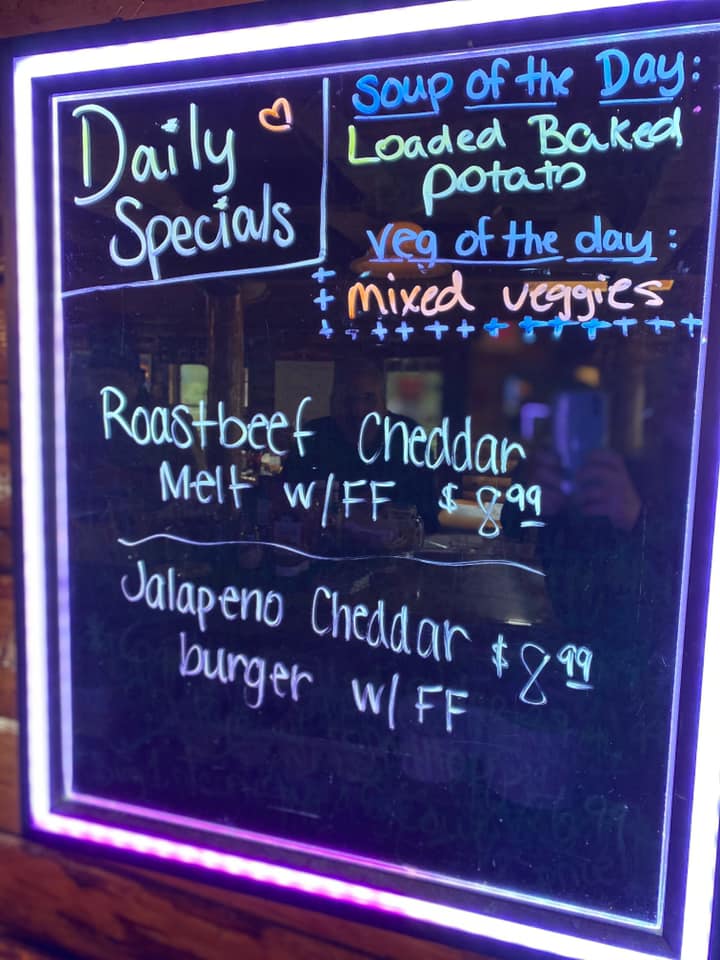 Daily
Specials
Soup of the Day:
Loaded Baked
potato
veg of the day:
mixed veggies
Roastbeef Cheddar
Melt w/FF $8.99
Jalapeno Cheddar $8.99
burger w/ FF